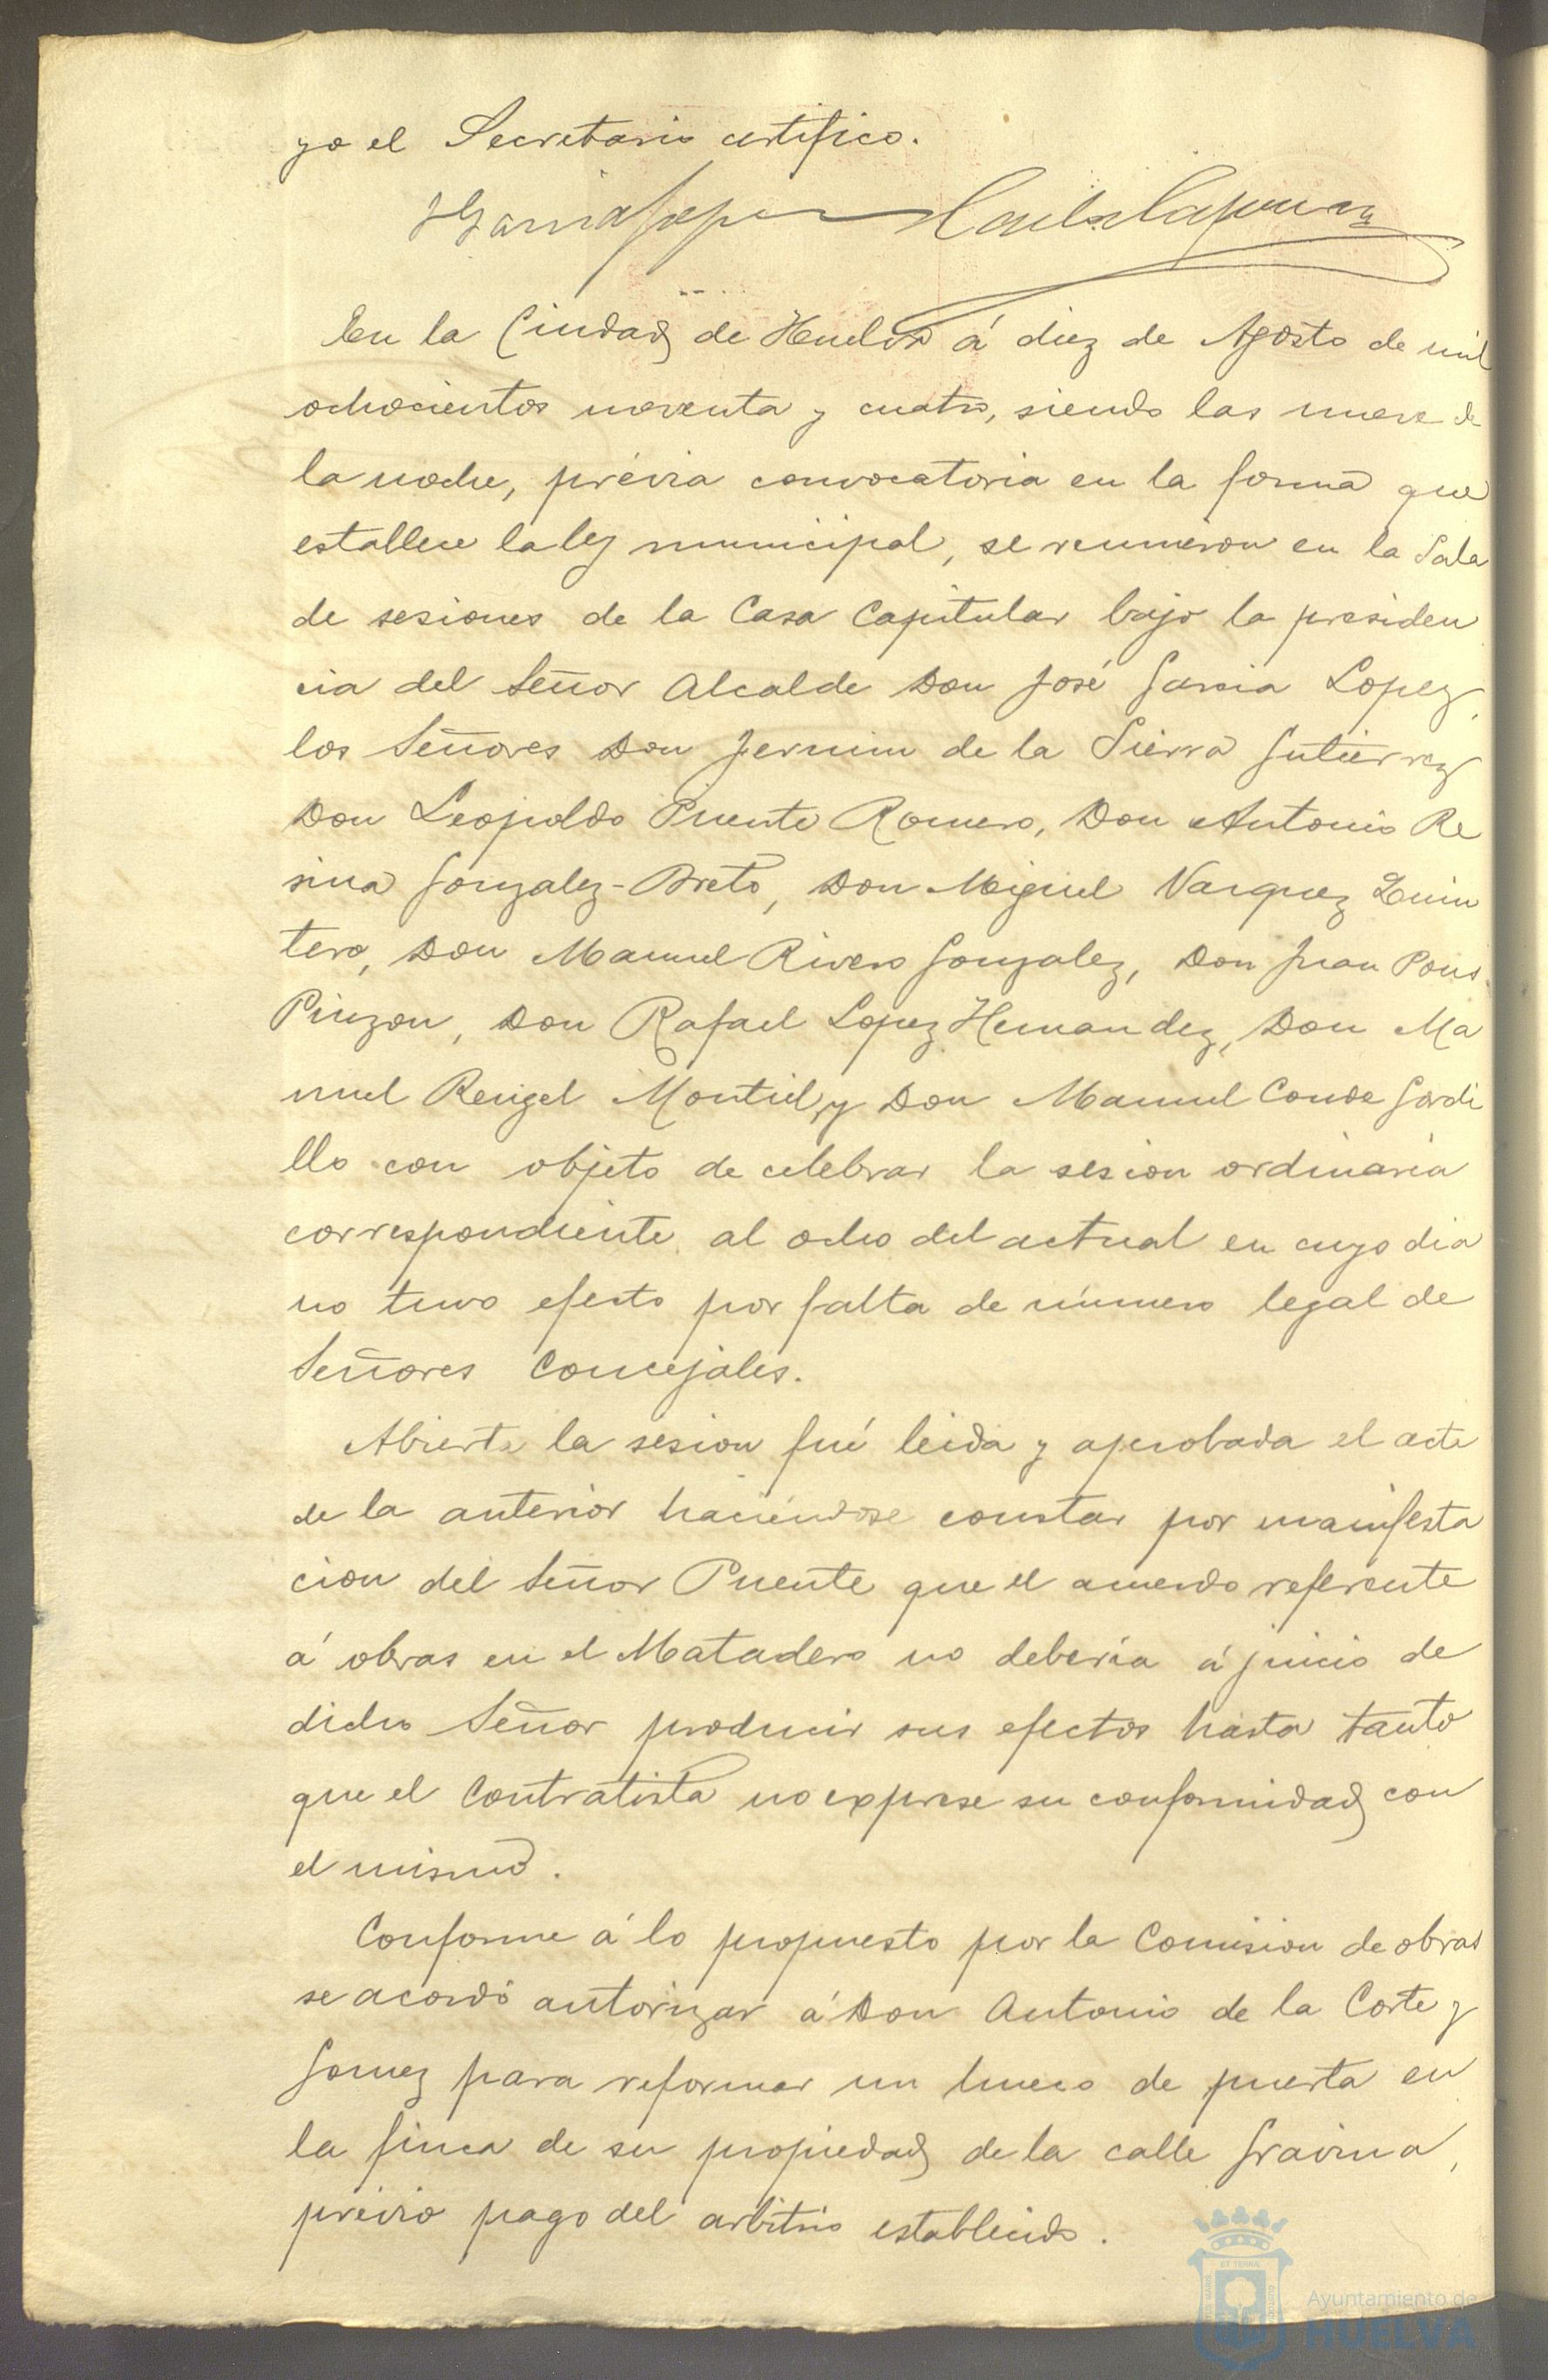 yo el Secretario certifico.
J Garcia Lopez
En la Ciudad de Huelva á diez de Agosto de mil
ochocientos noventa y cuatro, siendo las nueve de
la noche, prévia convocatoria en la forma que
establece la ley municipal, se reunieron en la Sala
de sesiones de la Casa Capitular bajo la presiden
cia del Señor Alcalde Don José Garcia Lopez,
los Señores Don Fermin de la Sierra Gutierrez
Don Leopoldo Puente Romero, Don Antonio Re
sina Gonzalez-Breto, Don Miguel Vazquez Quin
tero, Don Manuel Rivero Gonzalez, Don Juan Pons
Pinzon, Don Rafael Lopez Hernandez, Don Ma
nuel Rengel Montiel, y Don Manuel Conde Gordi
llo con objeto de celebrar la sesion ordinaria
correspondiente al ocho del actual en cuyo dia
no tuvo efecto por falta de número legal de
Señores Concejales.
Abierta la sesion fué leida y aprobada el acta
de la anterior haciéndose constar por manifesta
cion del Señor Puente que el acuerdo referente
á obras en el Matadero no deberia á juicio de
dicho Señor producir sus efectos hasta tanto
que el Contratista no exprese su conformidad con
el mismo.
Conforme á lo propuesto por la Comision de obras
se acordó autorizar á Don Antonio de la Corte y
Gomez para reformar un hueco de puerta en
la finca de su propiedad de la calle Gravina,
prévio pago del arbitrio establecido.
Ayuntamiento de
HUELVA